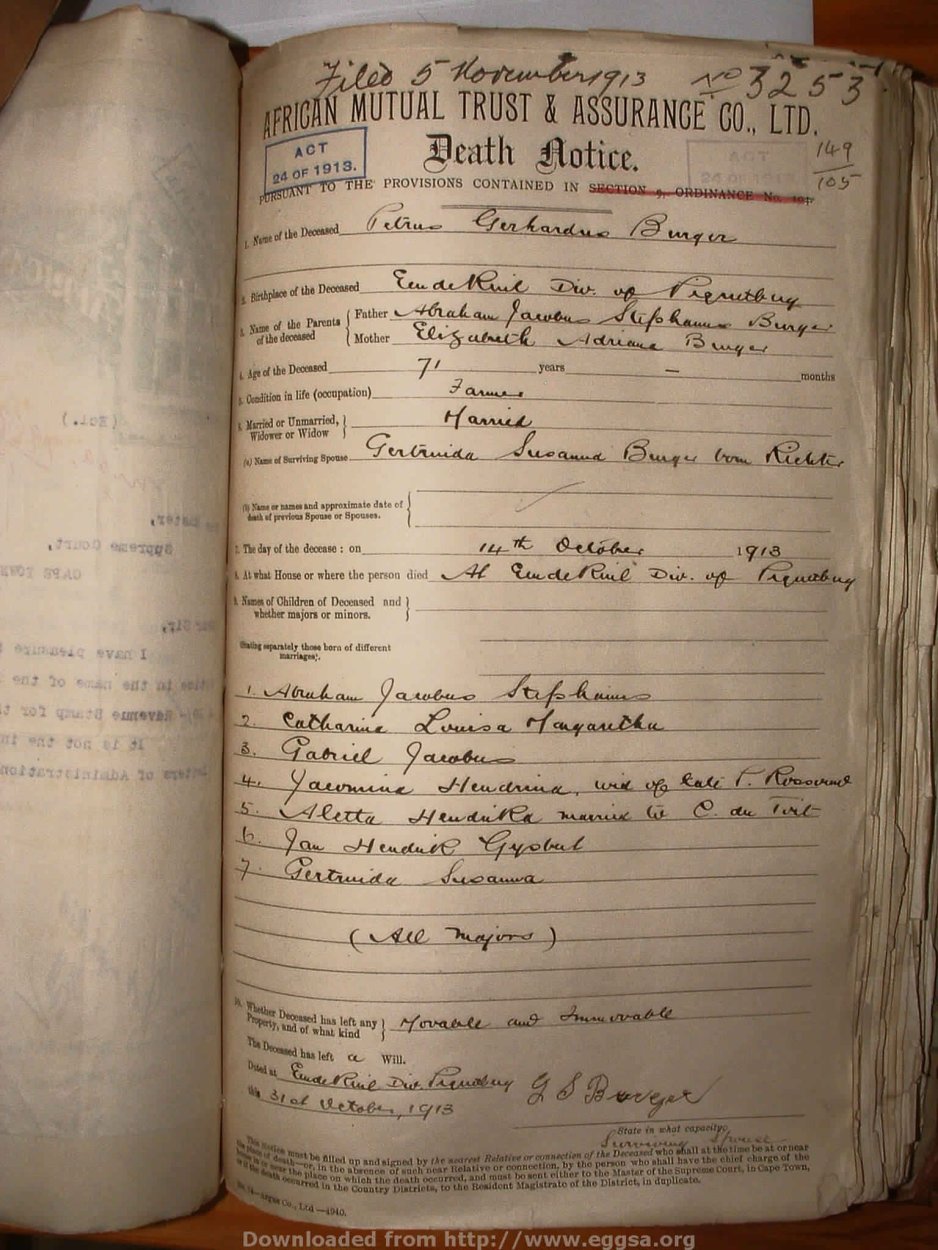 Filed 5 November 1913 No 3253
AFRICAN MUTUAL TRUST & ASSURANCE CO., LTD.
ACT
24 OF 1913.
Death Notice.
149
105
PURSUANT TO THE PROVISIONS CONTAINED IN SECTION 9, ORDINANCE No. 104.
1. Name of the Deceased Petrus Gerhardus Burger
2. Birthplace of the Deceased Eendekuil Div. of Piquetberg
3. Name of the Parents of the deceased
Father Abraham Jacobus Stephanus Burger
Mother Elizabeth Adriana Burger
4. Age of the Deceased 71 years — months
5. Condition in life (occupation) Farmer
6. Married or Unmarried, Widower or Widow Married
(a) Name of Surviving Spouse Gertruida Susanna Burger born Richter
(b) Name or names and approximate date of
death of previous Spouse or Spouses.
7. The day of the decease: on 14th October 1913
8. At what House or where the person died At Eendekuil Div. of Piquetberg
9. Names of Children of Deceased and
whether majors or minors.
(Stating separately those born of different
marriages).
1. Abraham Jacobus Stephanus
2. Catharina Louisa Margaretha
3. Gabriel Jacobus
4. Jacomina Hendrina, wid of late P.
5. Aletta Hendrika married to C. du Toit
6. Jan Hendrik Gysbert
7. Gertruida Susanna
(All majors)
10. Whether Deceased has left any
Property, and of what kind Movable and Immovable
The Deceased has left a Will.
Dated at Eendekuil Div. Piquetberg G S Burger
this 31st October, 1913
State in what capacity:
Surviving Spouse
This notice must be filled up and signed by the nearest Relative or connection of the Deceased who shall at the time be at or near
the place of death—or, in the absence of such near Relative or connection, by the person who shall have the chief charge of the
house in or near the place on which the death occurred, and must be sent either to the Master of the Supreme Court, in Cape Town,
or if the death occurred in the Country Districts, to the Resident Magistrate of the District, in duplicate.
Argus Co., Ltd.—4940.
Downloaded from http://www.eggsa.org